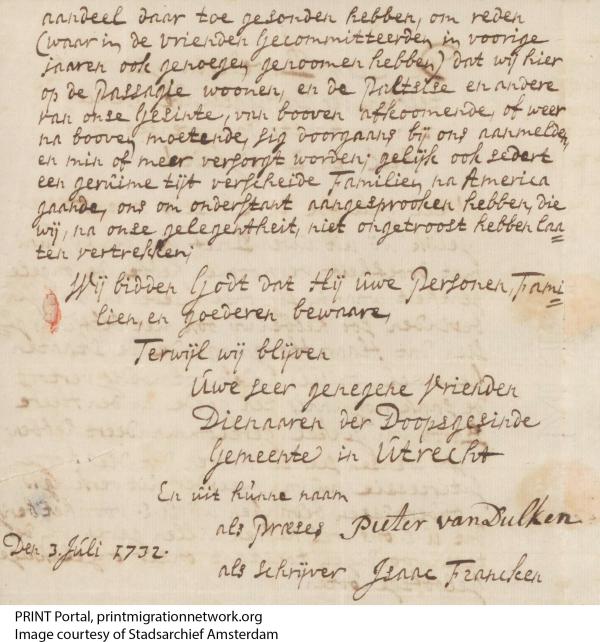 aandeel daar toe gesonden hebben, om reden
(waar in de vrienden Gecommitteerden in voorige
jaaren ook genoegen genoomen hebben) dat wij hier
op de Passagie woonen, en de Paltsise en andere
van onse Gesinte, van booven afkoomende, of weer
na booven moetende, sig doorgaans bij ons aanmelden,
en min of meer versorgt worden; gelijk ook sedert
een geruime tijt verscheide Familien, na America
gaande, ons om onderstant aangesprooken hebben, die
wij, na onse gelegentheit, niet ongetroost hebben laa=
ten vertrekken;
Wij bidden Godt dat Hij uwe Personen, Fami=
lien, en goederen bewaare,
Terwijl wij blijven
Uwe seer genegene Vrienden
Dienaaren der Doopsgesinde
Gemeente in Utrecht
En uit hunne naam
als Præses Pieter van Dulken
Den 3. Juli 1732.
als schrijver Isaac Francken
PRINT Portal, printmigrationnetwork.org
Image courtesy of Stadsarchief Amsterdam